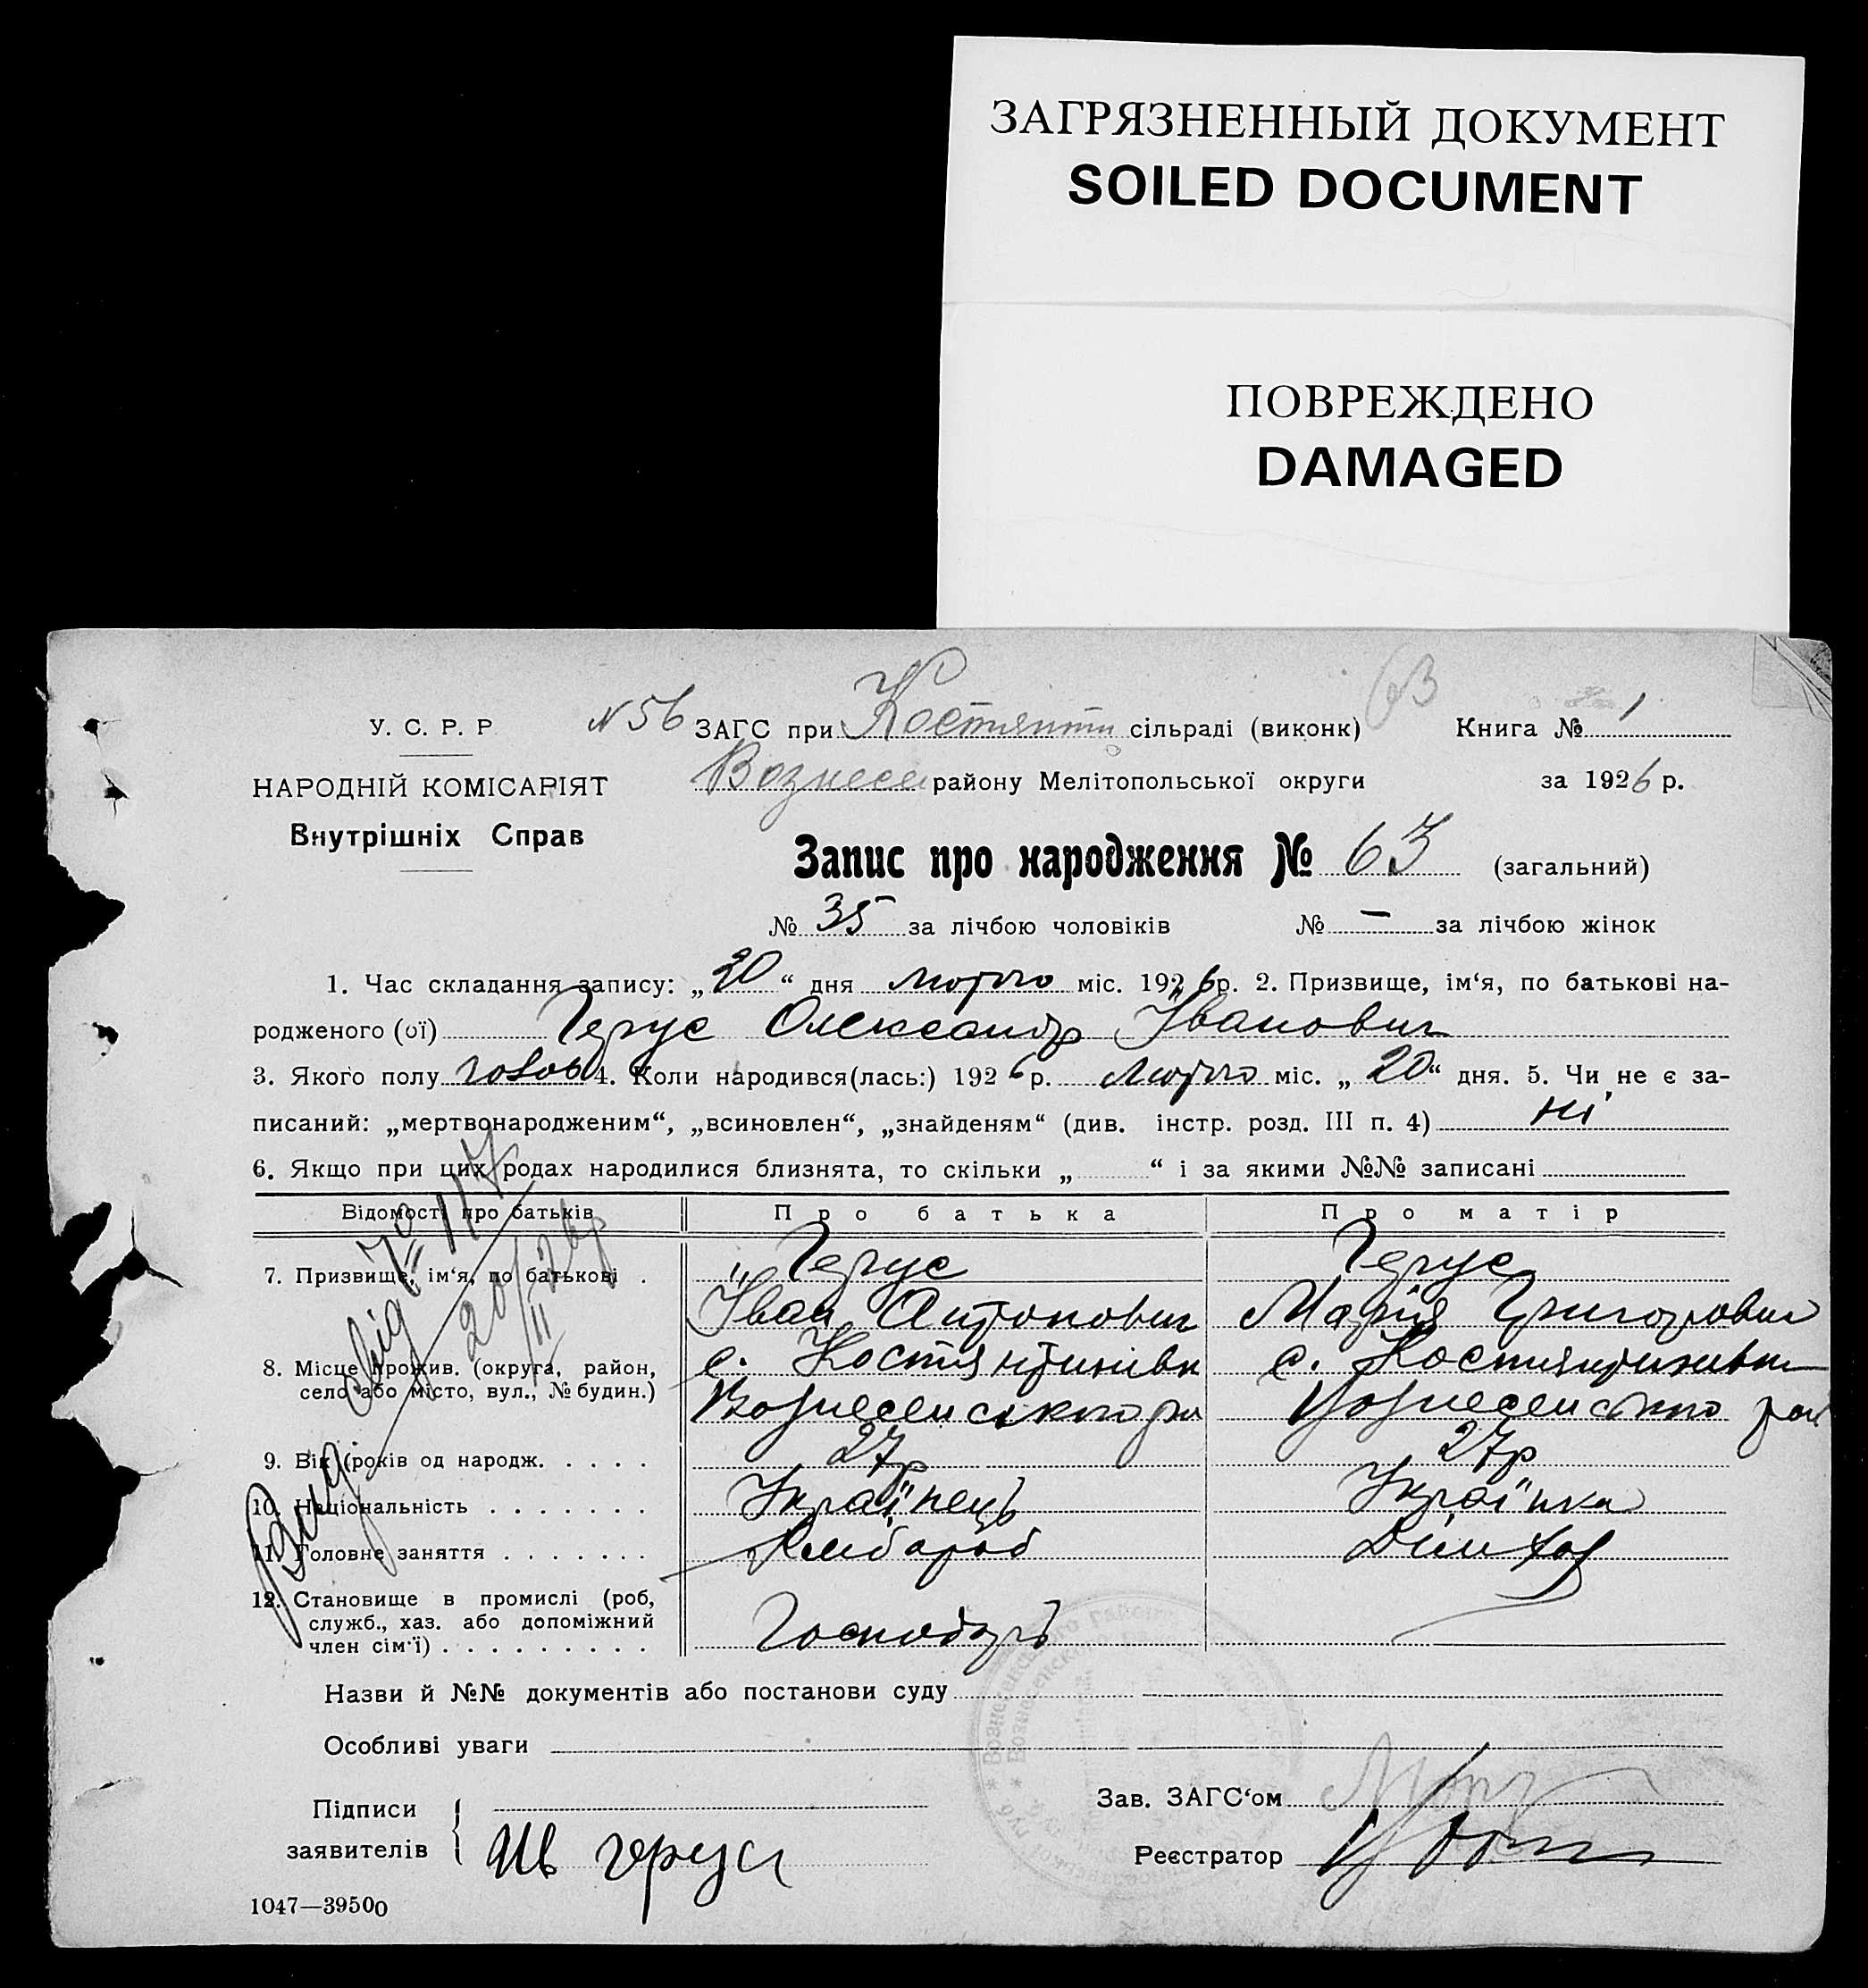 ЗАГРЯЗНЕННЫЙ ДОКУМЕНТ
SOILED DOCUMENT
ПОВРЕЖДЕНО
DAMAGED
63
У. С. Р. Р
N 56 ЗАГС при Костянти сільраді (виконк) Книга № 1
НАРОДНІЙ КОМІСАРІЯТ
Вознесен району Мелітопольської округи за 1926 р.
Внутрішніх Справ
Запис про народження № 63 (загальний)
№ 35 за лічбою чоловіків № — за лічбою жінок
1. Час складання запису: „20“ дня лютого міс. 1926 р. 2. Призвище, ім'я, по батькові на-
родженого (ої) Герус Олександр Іванович
3. Якого полу чолов 4. Коли народився(лась:) 1926 р. лютого міс. „20“ дня. 5. Чи не є за-
писаний: „мертвонародженим“, „всиновлен“, „знайденям“ (див. інстр. розд. III п. 4) ні
6. Якщо при цих родах народилися близнята, то скільки „ “ і за якими №№ записані
Відомості про батьків Про батька Про матір
7. Призвище, ім'я, по батькові . Герус Герус
Іван Антонович Марія Григорович
8. Місце прожив. (округа, район, с. Костянтинівки с. Костянтинівки
село або місто, вул., № будин.) Вознесенського ра Вознесенського рай
9. Вік (років од народж. . . . . 27р 27р
10. Національність . . . . . . . Українець Українка
11. Головне заняття . . . . . . . Хлібороб Дім хоз
12. Становище в промислі (роб,
служб., хаз. або допоміжний
член сім'ї) . . . . . . . . . Господарь
Вид свід № 117
20/II 26р
Назви й №№ документів або постанови суду
Особливі уваги
Підписи
заявителів
Ив герус
Зав. ЗАГС'ом
Реєстратор
1047—39500